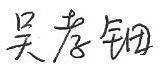 吴孝钿